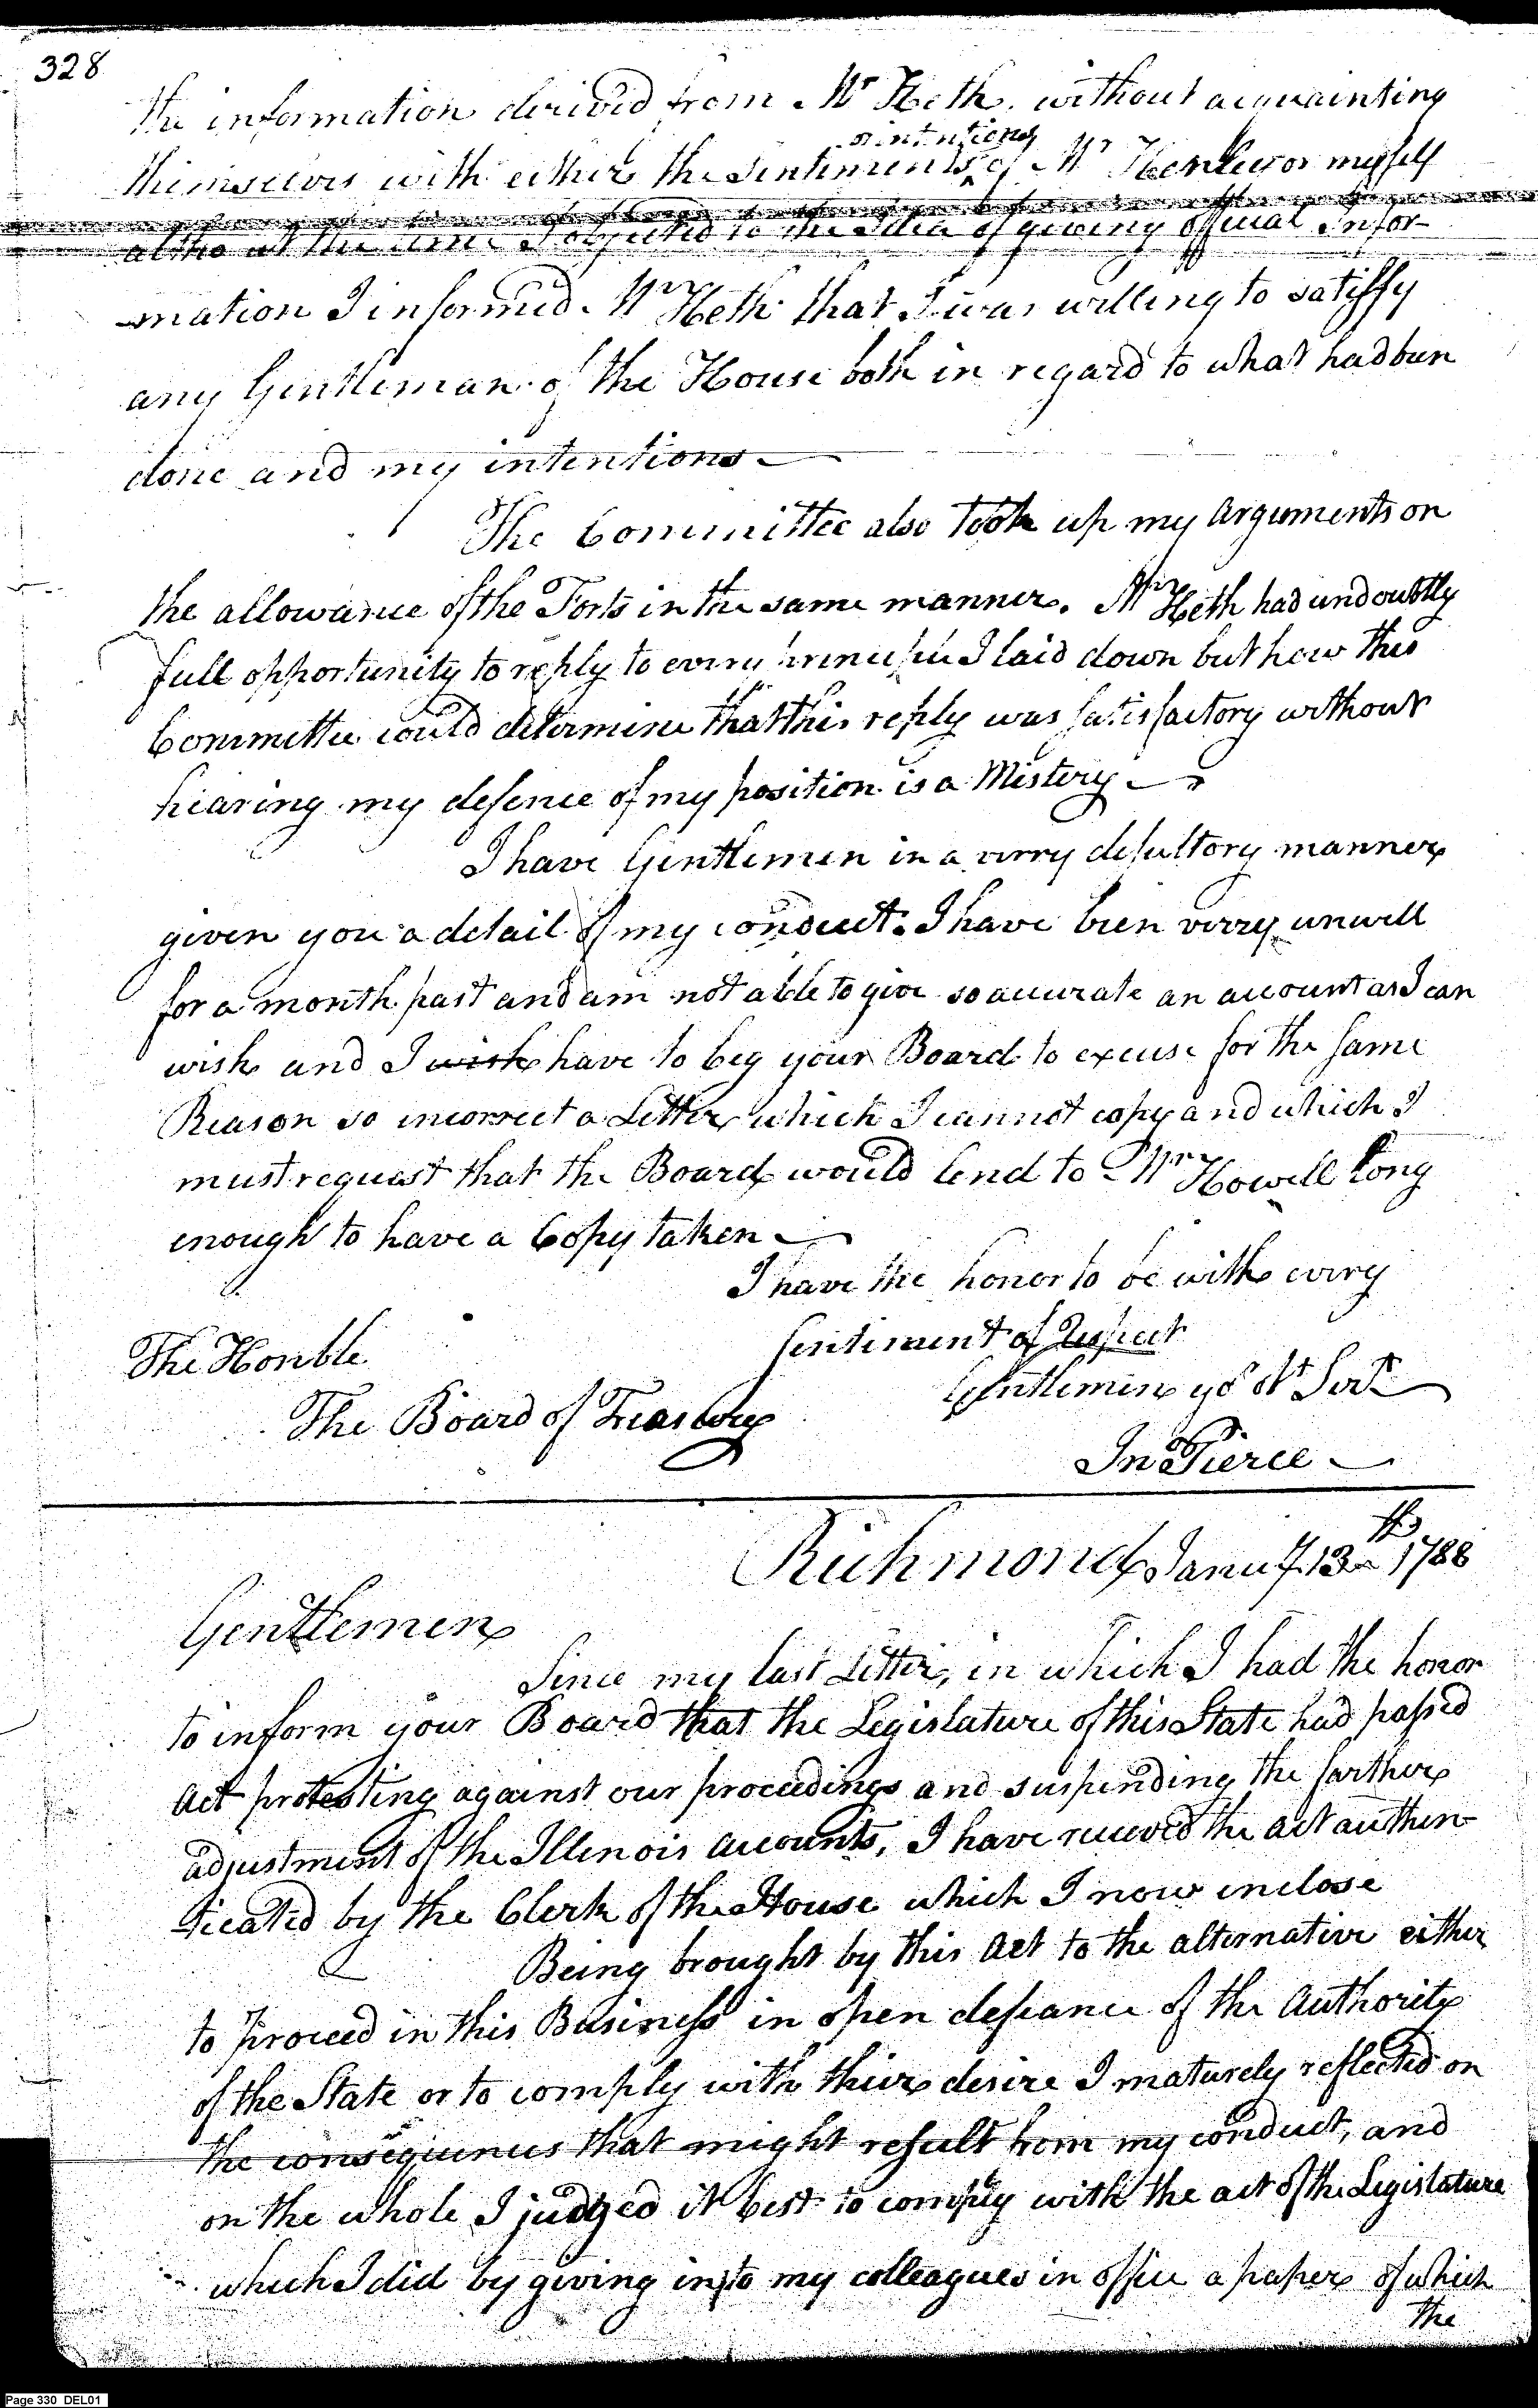 328
the information derived from Mr Heth. without acquainting
or intentions
themselves with either the Sentiments of Mr Henley or myself
altho at the time I objected to the Idea of giving official Infor-
-mation I informed Mr Heth that I was willing to satisfy
any Gentleman of the House both in regard to what had been
done and my intentions
The Committee also took up my Arguments on
the allowance of the Forts in the same manner. Mr Heth had undoubtly
full opportunity to reply to every principle I laid down but how this
Committee could determine that this reply was satisfactory without
hearing my defence of my position is a Mistery
I have Gentlemen in a verry desultory manner
given you a detail of my conduct. I have been verry unwell
for a month past and am not able to give so accurate an account as I can
wish and I wish have to beg your Board to excuse for the same
Reason so incorrect a Letter which I cannot copy and which I
must request that the Board would lend to Mr Howell long
enough to have a Copy taken
I have the honor to be with every
sentiment of Respect
The Honble
Gentlemen yo ot Servt
The Board of Treasury
Jno Pierce
Richmond Janu'y 13th 1788
Gentlemen
Since my last Letter, in which I had the honor
to inform your Board that the Legislature of this State had passed
Act protesting against our proceedings and suspending the farther
adjustment of the Illinois accounts, I have received the act authen-
ticated by the Clerk of the House which I now inclose
Being brought by this Act to the alternative either
to proceed in this Business in open defiance of the Authority
of the State or to comply with their desire I maturely reflected on
the consequences that might result from my conduct, and
on the whole I judged it best to comply with the act of the Legislature
which I did by giving in to my colleagues in office a paper of which
the
Page 330 DEL01